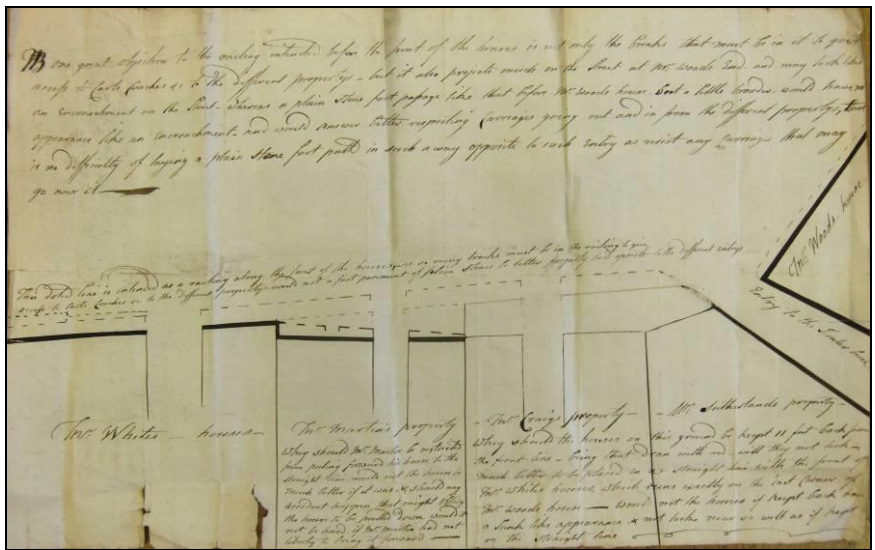 one great objection to the railing intended before the front of the houses is not only the breaks that must be in it to give
access to Carts Coaches &c to the different propertys - but it also projects much on the Street at Mr. Woods End, and may look like
an encroachment on the Street - whereas a plain stone foot passage like that before Mr. Woods house - but a little broader would have no
appearance like an encroachment - and would answer better respecting Carriages going out and in from the different propertys, there
is no difficulty of laying a plain Stone foot path in such a way opposite to each Entry as resist any Carriage that may
go over it
This doted line is intended as a railing along the front of the houses, as so many breaks must be in the railing to give
access to Carts Coaches &c to the different propertys would not a foot pavement of plain stones be better properly laid opposite to the different entrys
Mr. Woods house
Entry to the Timber
Mr. Whites - houses -
Mr. Martins property
Why should Mr. Martin be restricted
from puting forward his house to the
straight line, would not the houses be
much better if it was - & should any
accident happen that might oblige
the house to be pulled down would it
not be hard if Mr. Martin had not
liberty to bring it forward
- Mr. Craigs property -
- Mr. Sutherlands property -
Why should the houses on this ground be keept 11 feet back from
the front line - being that drawn with red - will they not look
much better to be placed in a straight line with the front of
Mr. Whites houses, which runs exactly on the East Corner of
Mr. Woods house - would not the houses if keept back have
a Sunk like appearance & not look near so well as if keept
on the straight line